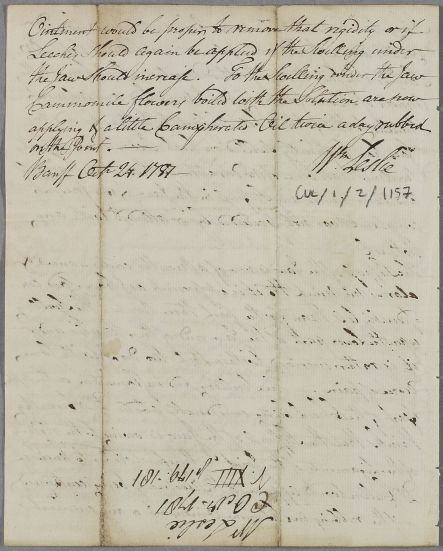 Ointment would be proper to remove that rigidity or if
Leeches should again be applied if the swelling under
the Jaw should increase. To the swelling under the Jaw
Cammomile flowers boiled with the Solution are now
applying & a little Camphorated Oil twice a day rubbed
on the Part.
Wm Leslie
Banff Octr 24. 1781
CUL/1/2/1157.
Mr Leslie
Octr 1781
XIII p. 179. 181